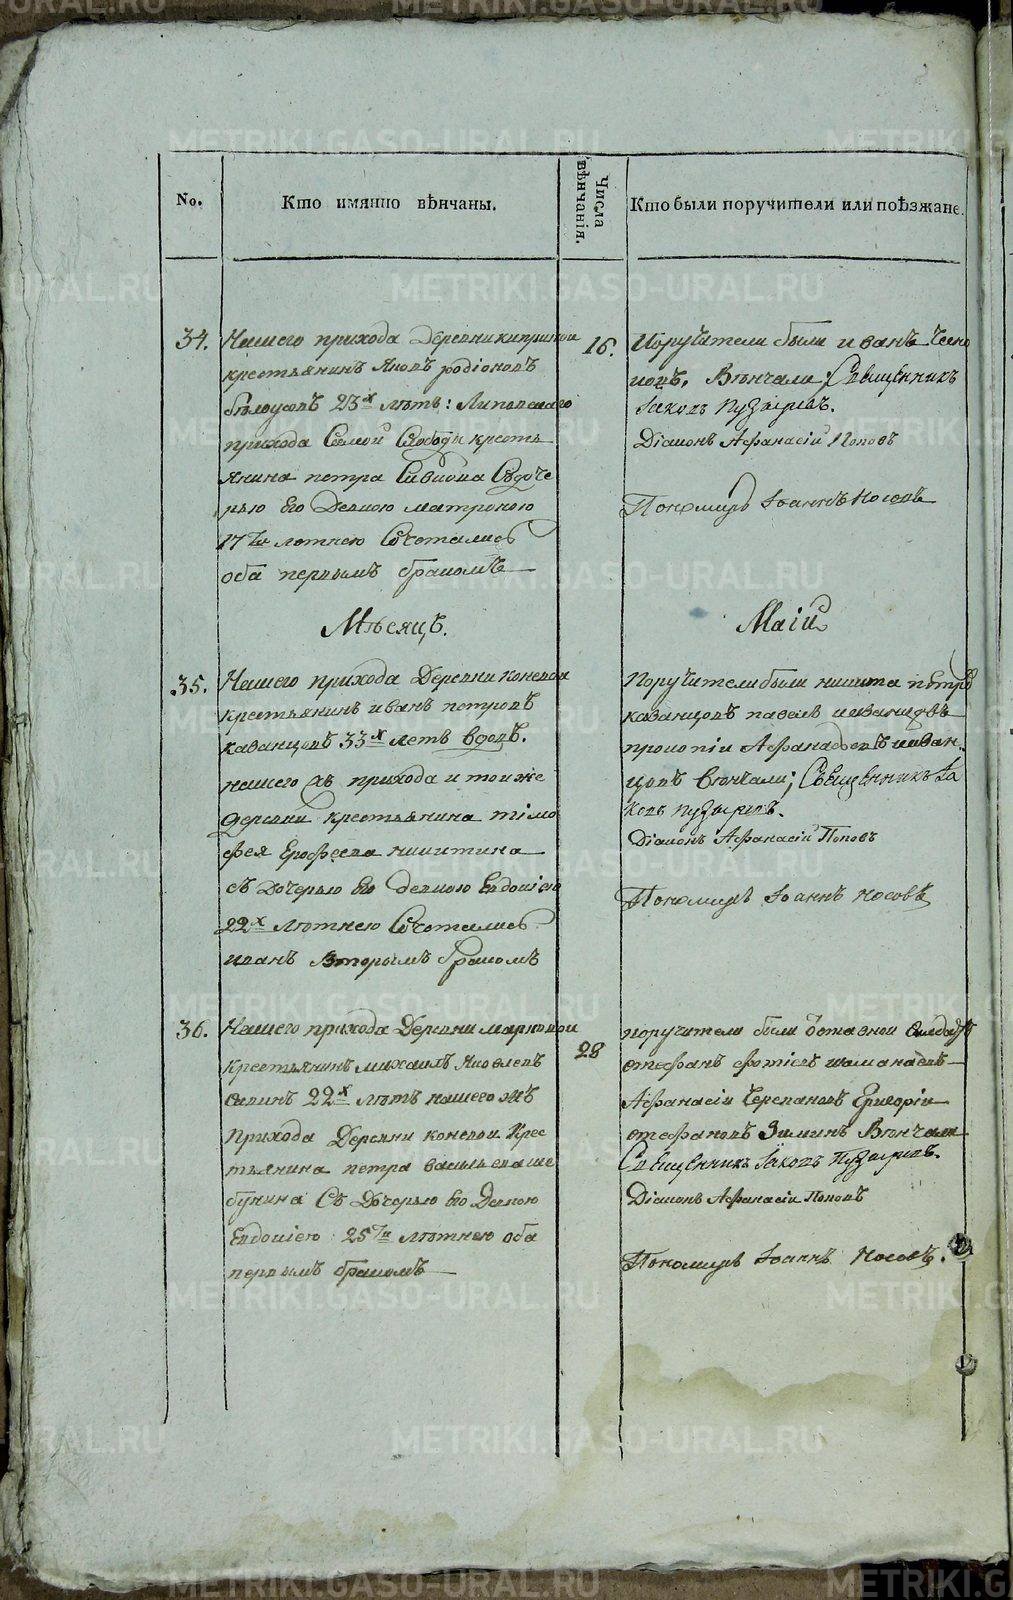 No.
Кто имянно вѣнчаны.
Числа вѣнчанія.
Кто были поручители или поѣзжане.
34.
Нашего прихода Деревни киприной
крестьянинъ Яковъ родіоновъ
бѣлоусовъ 23х лѣтъ: Липовскаго
прихода Самой Слободы кресть
янина петра Сѣдоче
рью Его Девкою матроною
17ти лѣтнею Сочетались
оба первымъ бракомъ
16.
Поручители были иванъ
Вѣнчали: Священникъ
Іаковъ Пузыревъ.
Діаконъ Афанасій Поповъ
Пономарь Іоаннъ Носовъ
Мѣсяцъ.
Маій
35.
Нашего прихода Деревни коневой
крестьянинъ иванъ петровъ
казанцовъ 33х летъ вдовъ.
нашего жъ прихода и тоиже
деревни крестьянина тімо
фея Ерофеева никитина
съ Дочерью Его девкою Евдокіею
22х лѣтнею Сочетались
иванъ вторымъ бракомъ
Поручители были никита петровъ
казанцовъ павелъ
прокопіи Афанасьевъ
цовъ вѣнчали; Священникъ Іа
ковъ пузыревъ.
Діаконъ Афанасій Поповъ
Пономарь Іоаннъ Носовъ
36.
Нашего прихода Деревни марковой
крестьянинъ михаилъ Яковлевъ
22х лѣтъ нашего жъ
прихода Деревни коневой Крес
тьянина петра васильева ше
бунина Съ Дочерью Его Девкою
Евдокіею 25ти лѣтнею оба
первымъ бракомъ
28
поручители были отставной Солдатъ
стефанъ шаманаевъ
Афанасіи Черепановъ Григоріи
стефановъ Зиминъ Вѣнчали
Священникъ Іаковъ Пузыревъ.
Діаконъ Афанасіи Поповъ
Пономарь Іоаннъ Носовъ.
METRIKI.GASO-URAL.RU